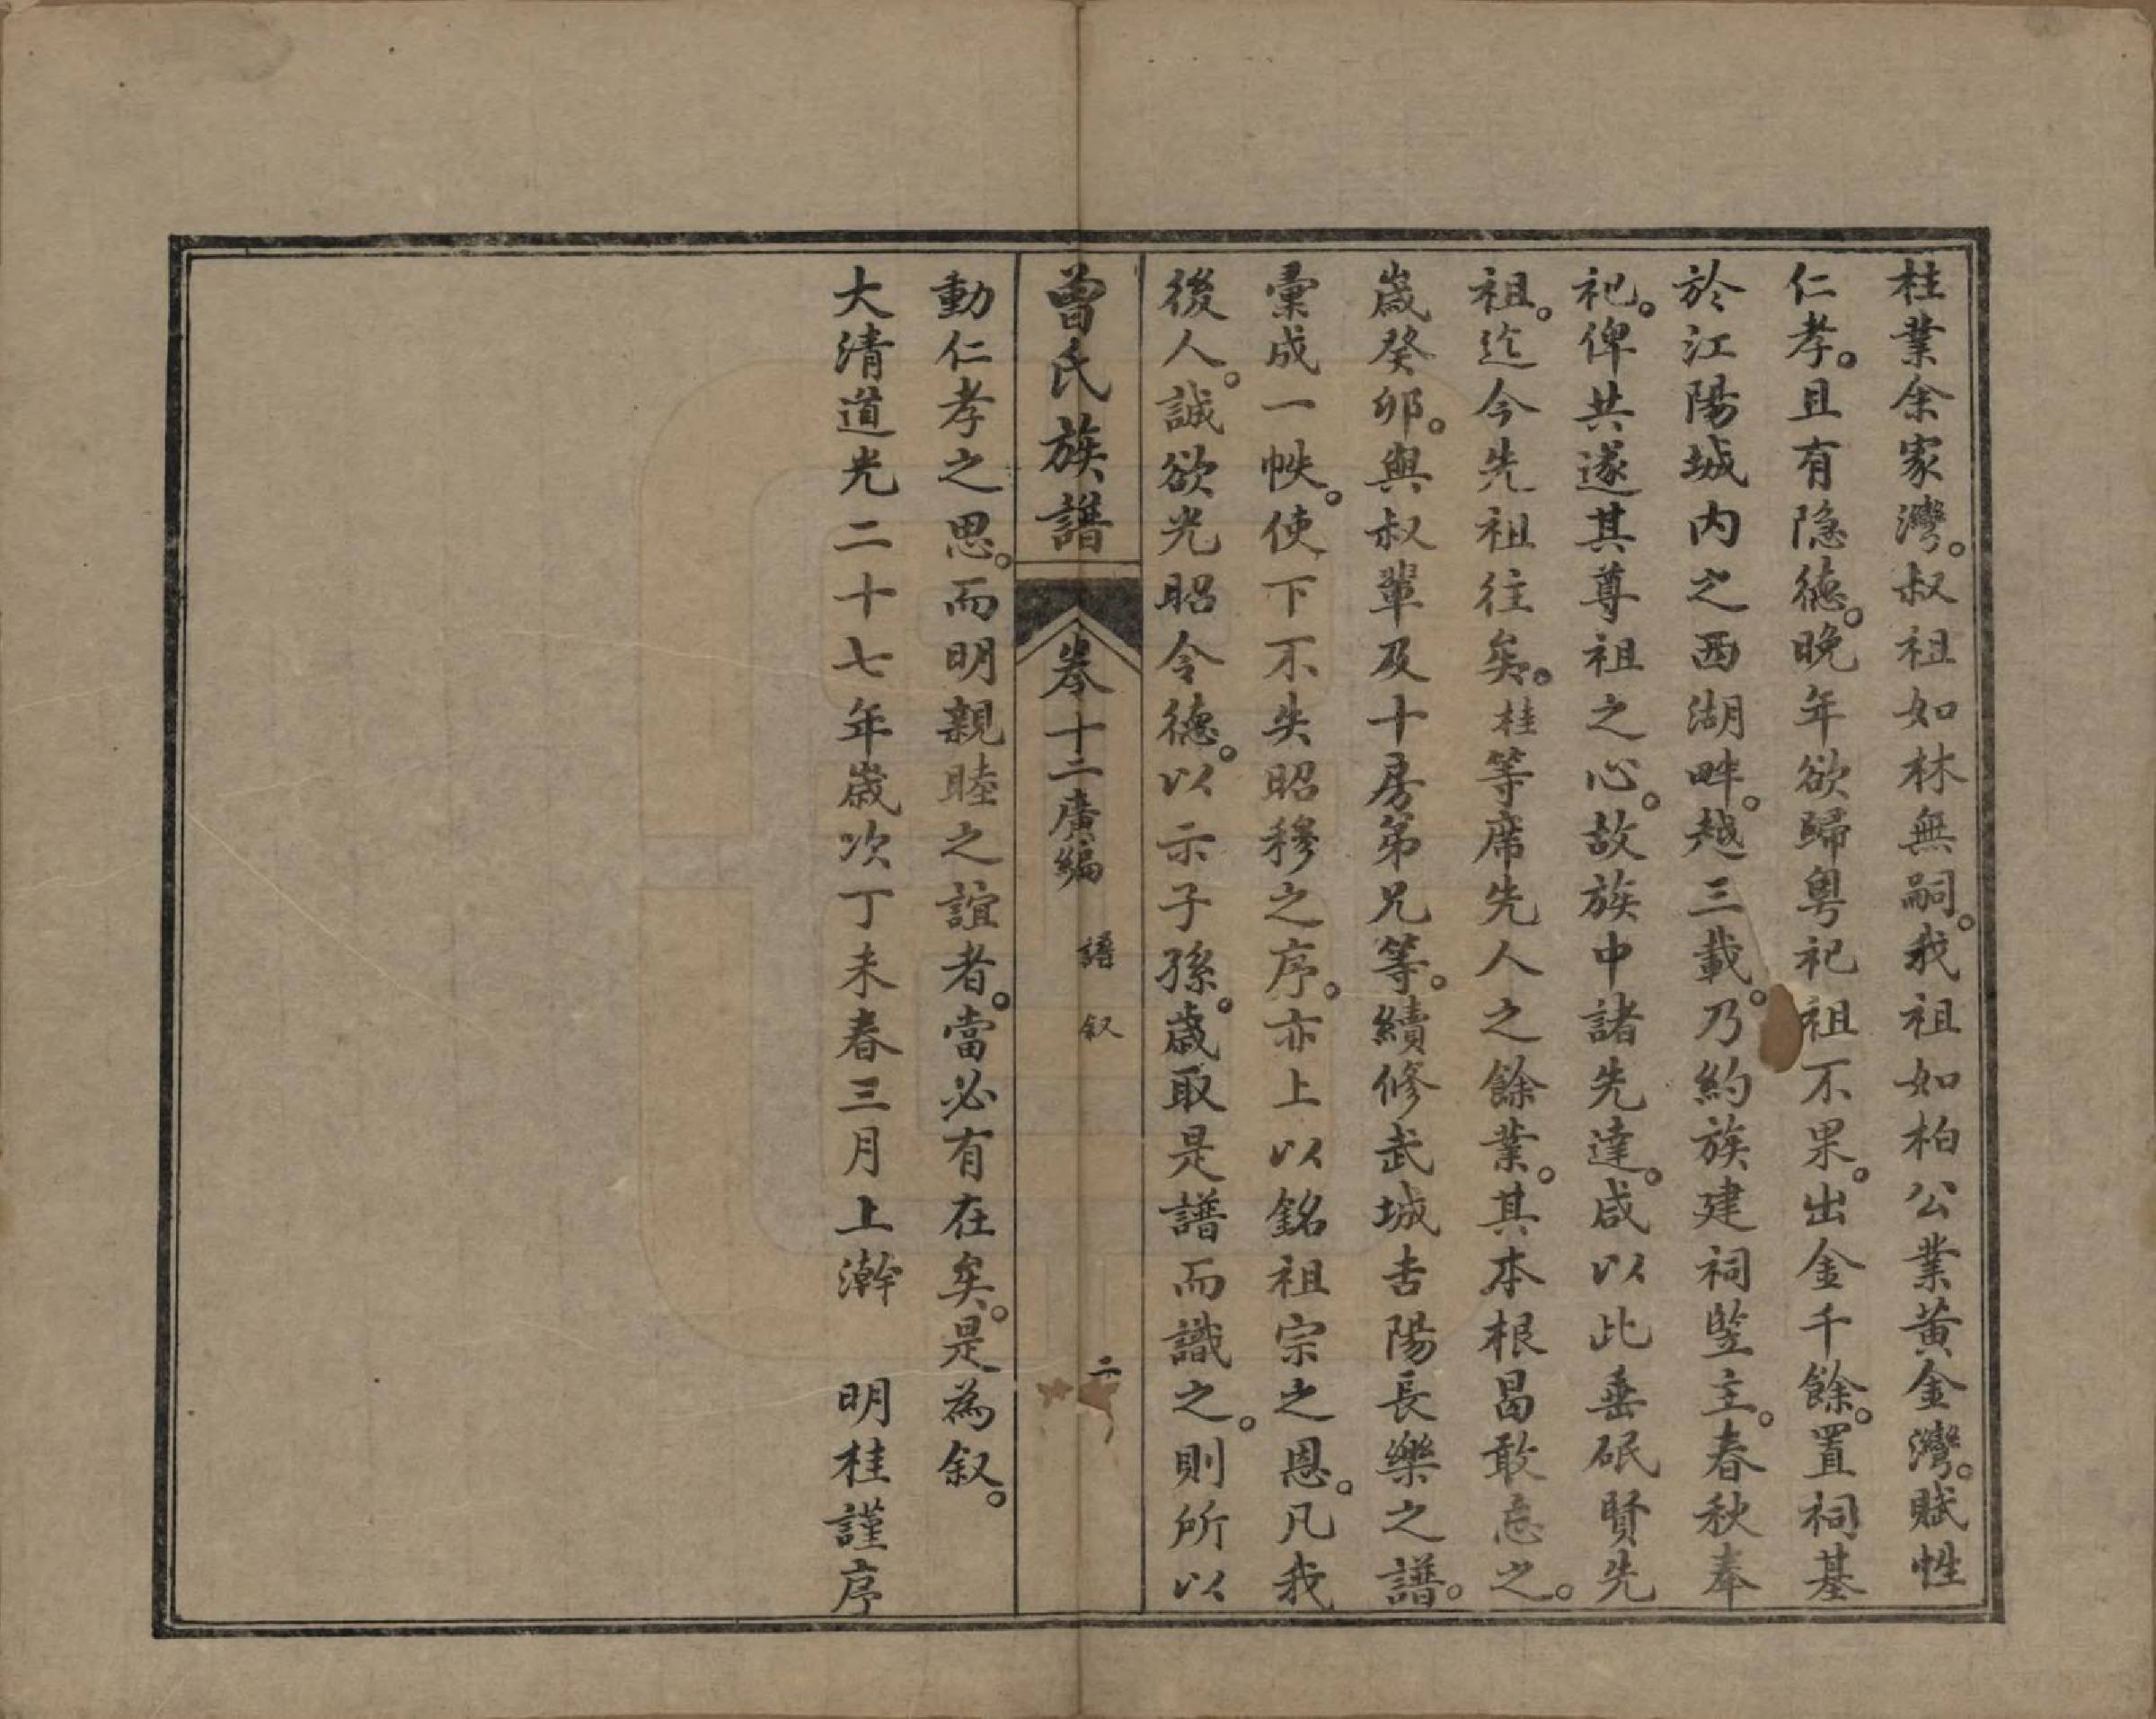 桂業余家灣。叔祖如林無嗣。我祖如柏公業黃金灣。賦性
仁孝。且有隱德。晚年欲歸粵祀祖不果。出金千餘。置祠基
於江陽城內之西湖畔。越三載。乃約族建祠竪主。春秋奉
祀。俾共遂其尊祖之心。故族中諸先達。咸以此垂砥賢先
祖。迄今先祖往矣。桂等席先人之餘業。其本根曷敢忘之。
歲癸卯。與叔輩及十房弟兄等。續修武城吉陽長樂之譜。
彙成一帙。使下不失昭穆之序。亦上以銘祖宗之恩。凡我
後人。誠欲光昭令德。以示子孫。歲取是譜而識之。則所以
曾氏族譜 卷十二廣編 譜叙 二
動仁孝之思。而明親睦之誼者。當必有在矣。是為叙。
大清道光二十七年歲次丁未春三月上澣 明桂謹序